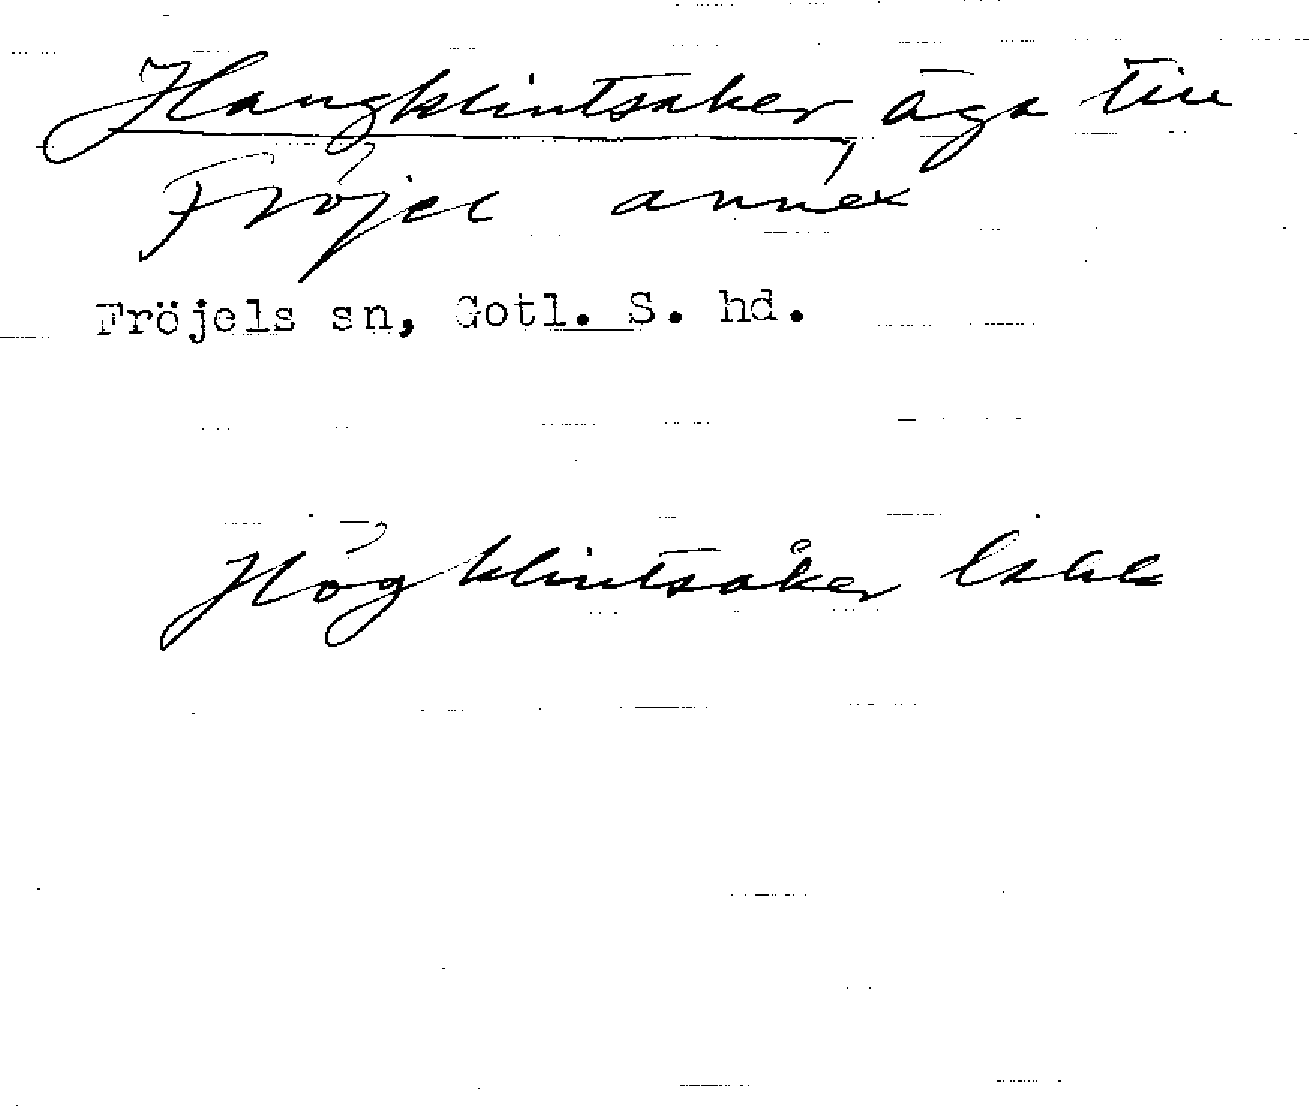 Haugklintsaker, äga till
Fröjel annex
Fröjels sn, Gotl. S. hd.
Högklintsåker